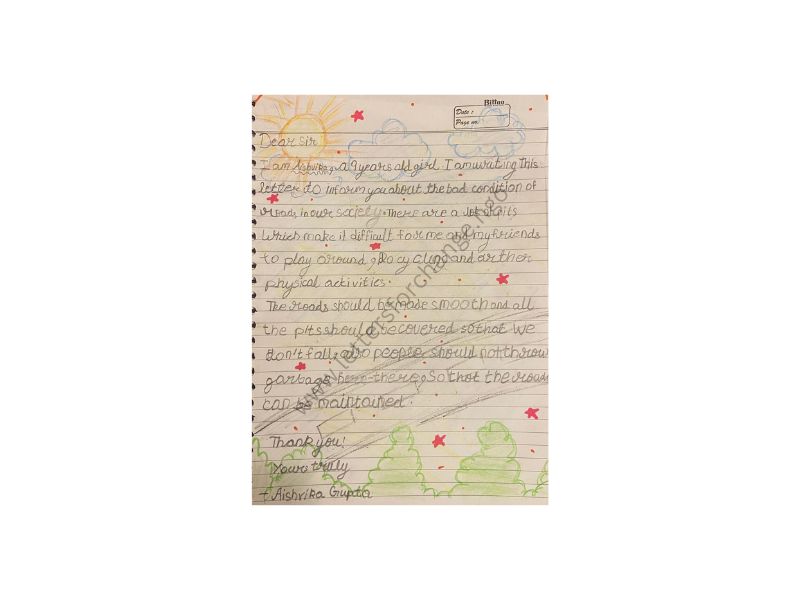 Billno
Date :
Page no.
Dear Sir
I am Aishvika, a 9 years old girl. I am writing this
letter to inform you about the bad condition of
roads, in our society. There are a lot of pits
which make it difficult for me and my friends
to play around, do cycling and orther
physical activities.
The roads should be made smooth and all
the pits should be covered so that we
don't fall, also people should not throw
garbage here-there, So that the roads
can be maintained.
Thank you!
Yours trully
Aishvika Gupta
www.lettersforchange.ngo